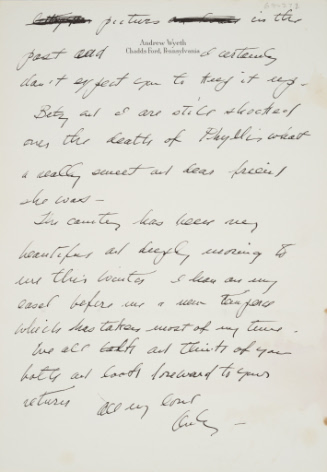 pictures in the
Andrew Wyeth
Chadds Ford, Pennsylvania
past and I certainly
don't expect you to keep it up –
Betsy and I are still shocked
over the death of Phyllis what
a really sweet and dear friend
she was –
The country has been very
beautiful and deeply moving to
me this winter I have on my
easel before me a new tempera
which has taken most of my time.
We all talk and think of you
both and look foreward to your
return all my love
Andy –